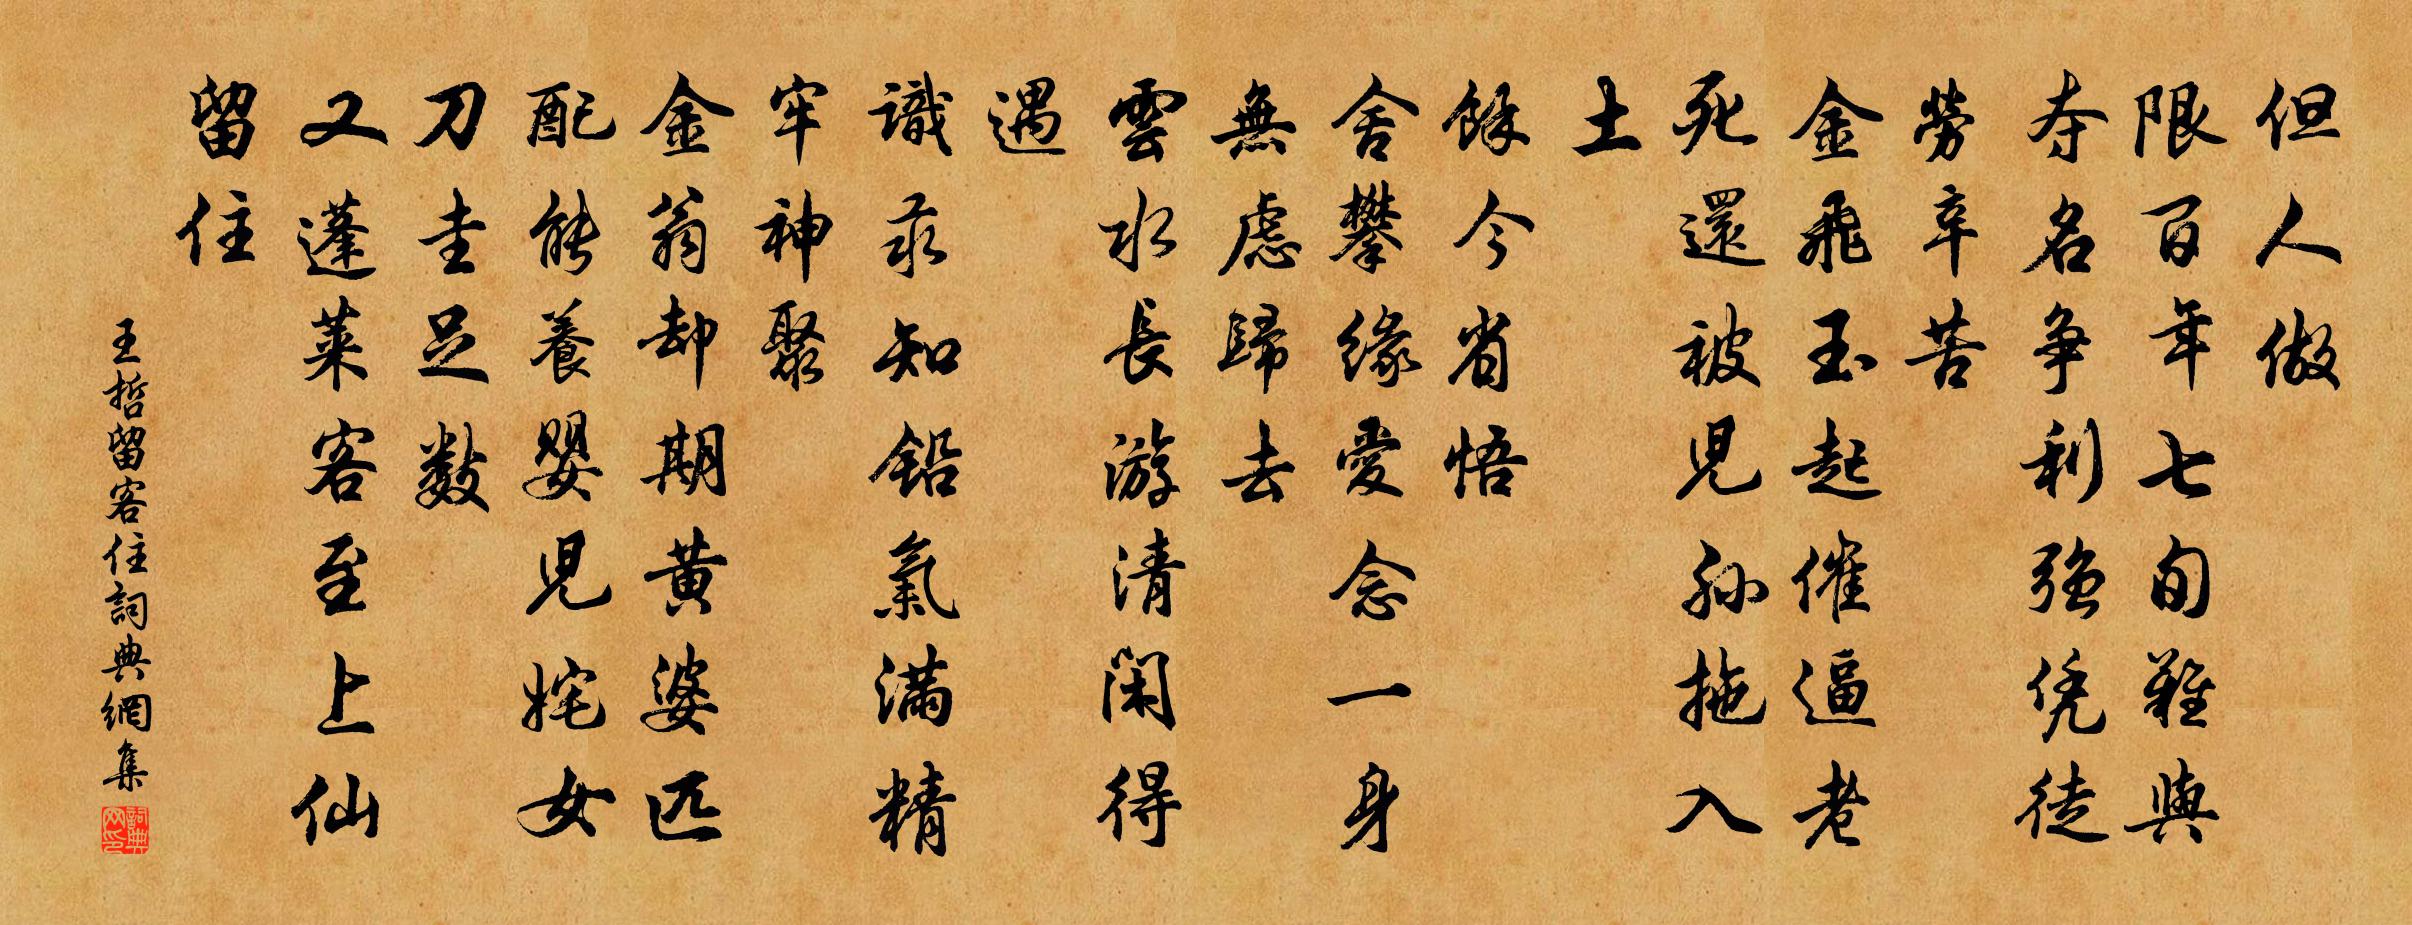 但人做
限百年七旬難與
夺名争利強凭徒
勞辛苦
金飛玉起催逼老
死還被兒孙拖入
土
餘今省悟
舍攀緣愛念一身
無慮歸去
雲水長游清閑得
遇
識汞知鉛氣滿精
牢神聚
金翁却期黄婆匹
配能養嬰兒姹女
刀圭足數
又蓬莱客至上仙
留住
王哲留客住詞典網集
詞典網印